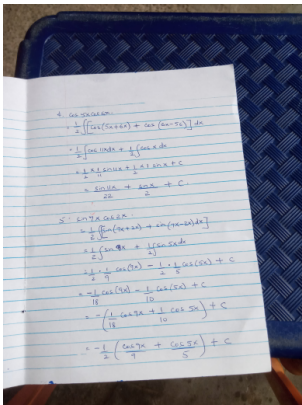 4. cos 5x cos 6x
= 1/2 ∫[cos(5x+6x) + cos(6x-5x)] dx
= 1/2 ∫cos 11x dx + 1/2 ∫cos x dx
= 1/2 × 1/11 sin 11x + 1/2 × 1 sin x + C
= sin 11x / 22 + sin x / 2 + C.
5. sin 7x cos 2x
= 1/2 ∫[sin(7x+2x) + sin(7x-2x) dx]
= 1/2 ∫sin 9x + 1/2 ∫sin 5x dx
= -1/2 · 1/9 cos(9x) - 1/2 · 1/5 cos(5x) + C
= -1/18 cos(9x) - 1/10 cos(5x) + C
= -(1/18 cos 9x + 1/10 cos 5x) + C
= -1/2 (cos 9x / 9 + cos 5x / 5) + C